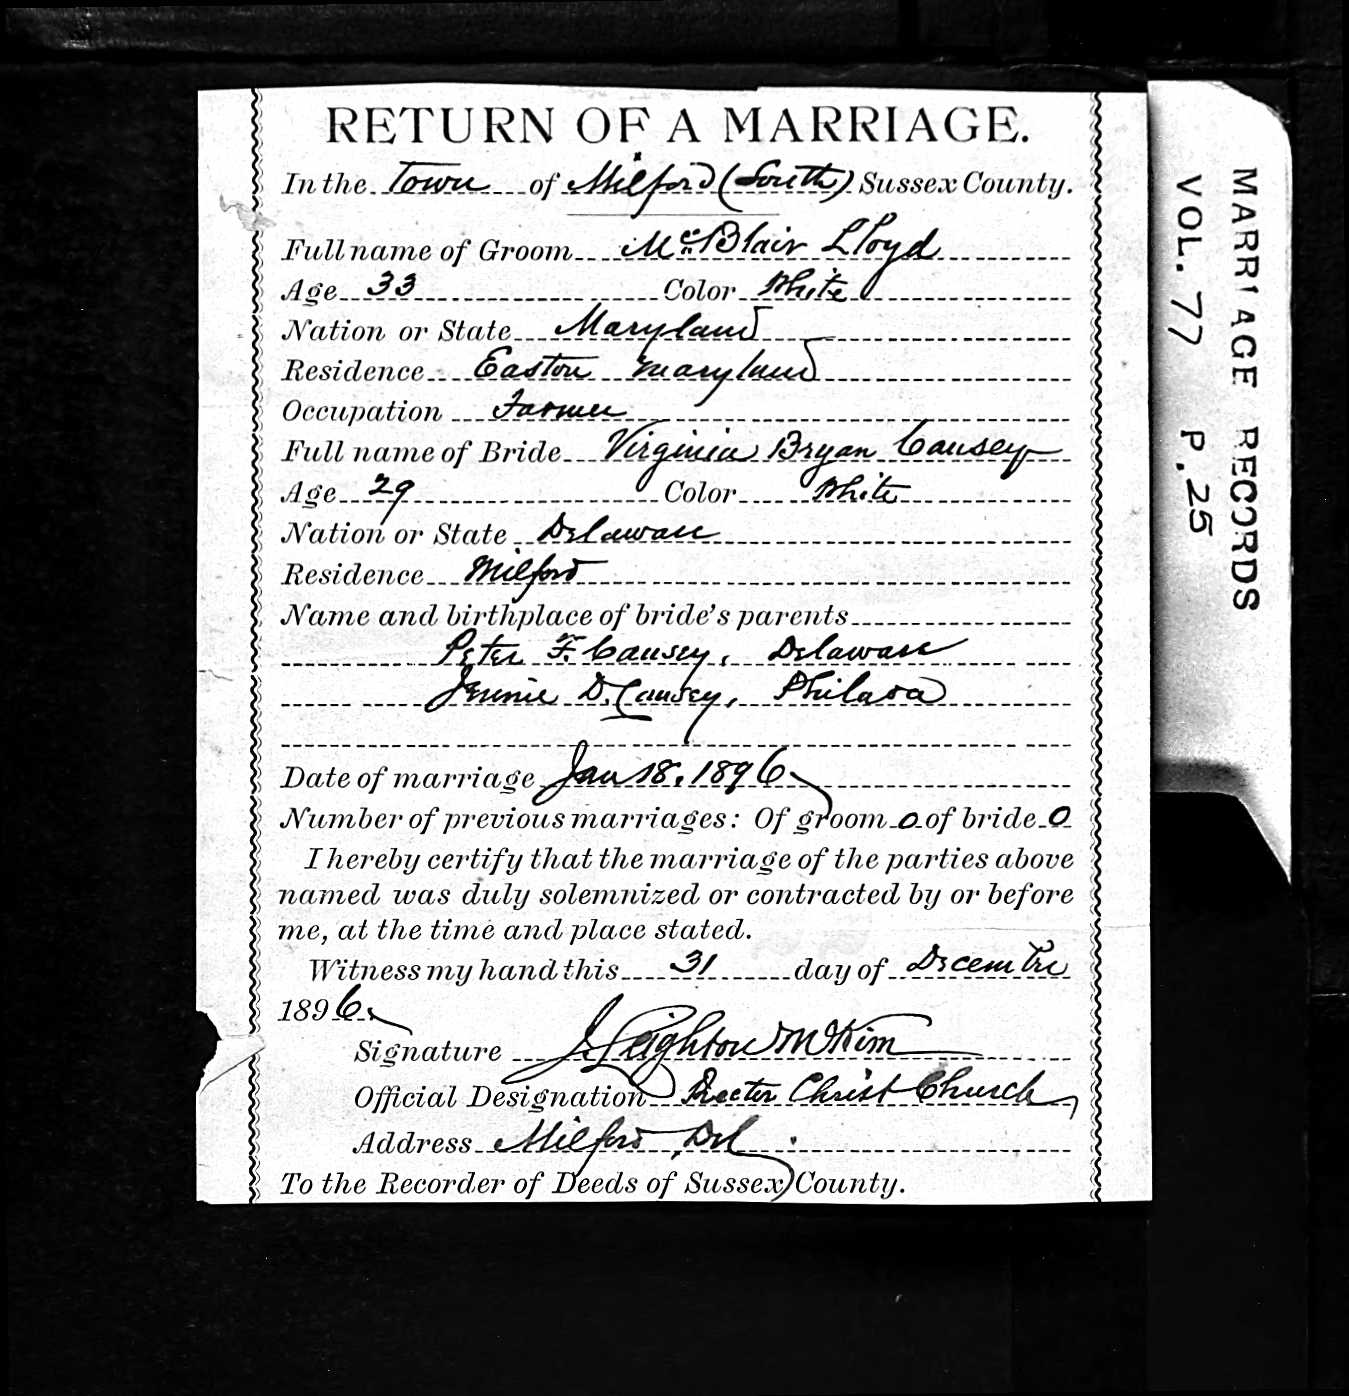 RETURN OF A MARRIAGE.
In the Town of Milford (South) Sussex County.
Full name of Groom McBlair Lloyd
Age 33 Color White
Nation or State Maryland
Residence Easton Maryland
Occupation Farmer
Full name of Bride Virginia Bryan Causey
Age 29 Color White
Nation or State Delaware
Residence Milford
Name and birthplace of bride's parents
Peter F. Causey, Delaware
Jennie D. Causey, Philada
Date of marriage Jan 18. 1896
Number of previous marriages: Of groom 0 of bride 0
I hereby certify that the marriage of the parties above
named was duly solemnized or contracted by or before
me, at the time and place stated.
Witness my hand this 31 day of December
1896.
Signature J. Leighton McKim
Official Designation Rector Christ Church
Address Milford, Del.
To the Recorder of Deeds of Sussex County.
MARRIAGE RECORDS
VOL. 77 P. 25